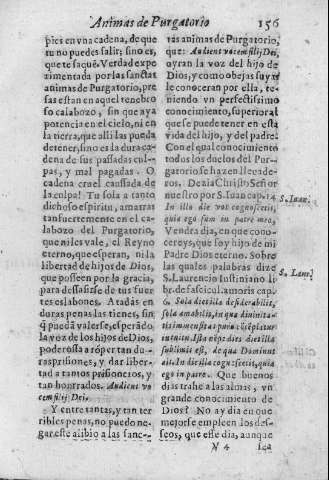 Animas de Purgatorio 156
pies en vna cadena, de que
tu no puedes salir; sino es,
que te saquē. Verdad expe
rimentada por las sanctas
animas de Purgatorio, pre
sas estan en aquel tenebro
so calabozo, sin que aya
potencia en el cielo, ni en
la tierra, que alli las pueda
detener, sino es la dura ca-
dena de sus passadas cul-
pas, y mal pagadas. O,
cadena cruel caussada de
la culpa! Tu sola a tanto
dichoso espiritu, amarras
tan fuertemente en el ca-
labozo del Purgatorio,
que ni les vale, el Reyno
eterno, que esperan, ni la
libertad de hijos de Dios,
que posseen por la gracia,
para dessasirse de tus fuer
tes eslabones. Atadas en
duras penas las tienes, sin
q̄ pueda valerse, esperādo
la voz de los hijos de Dios,
poderossa a rōper tan du-
ras prisiones, y dar liber-
tad a tantos prisioneros, y
tan honrrados. Audient vo
cem filij Dei.
Y entre tantas, y tan ter
ribles penas, no puedo ne-
gar este alibio a las sanc-
tas animas de Purgatorio,
que: Audient vocem filij Dei,
oyran la voz del hijo de
Dios; y como obejas suyas
le conoceran por ella, te-
niendo vn perfectissimo
conocimiento, superior al
que se puede tener en esta
vida del hijo, y del padre.
Con el qual conocimiento
todos los duelos del Pur-
gatorio se hazen llevade-
ros. Dezia Christo Señor
nuestro por S. Iuan cap. 14
S. Iuan.
In illo die vos cognoscetis,
quia ego sum in patre meo,
Vendra dia, en que cono-
cereys, que soy hijo de mi
Padre Dios eterno. Sobre
las quales palabras dize
S. Laurencio Iustiniano li-
S. Laur.
br. de fascicul. amoris cap.
6. Sola dies illa desiderabilis,
sola amabilis, in qua diuinita-
tis immensitas puro cōspicitur
intuitu. Ista enim dies dies illa
sublimis est, de qua Dominus
ait. In die illa cognoscetis, quia
ego in patre. Que buenos
dias trahe a las almas, vn
grande conocimiento de
Dios? No ay dia en que
mejor se empleen los des-
seos, que este dia, aunque
N 4